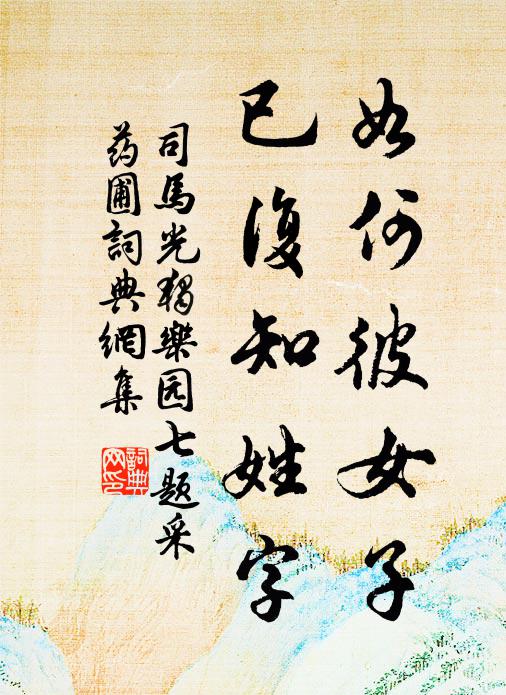 如何彼女子
已復知姓字
司馬光獨樂园七題采
药圃詞典網集
詞典
网印